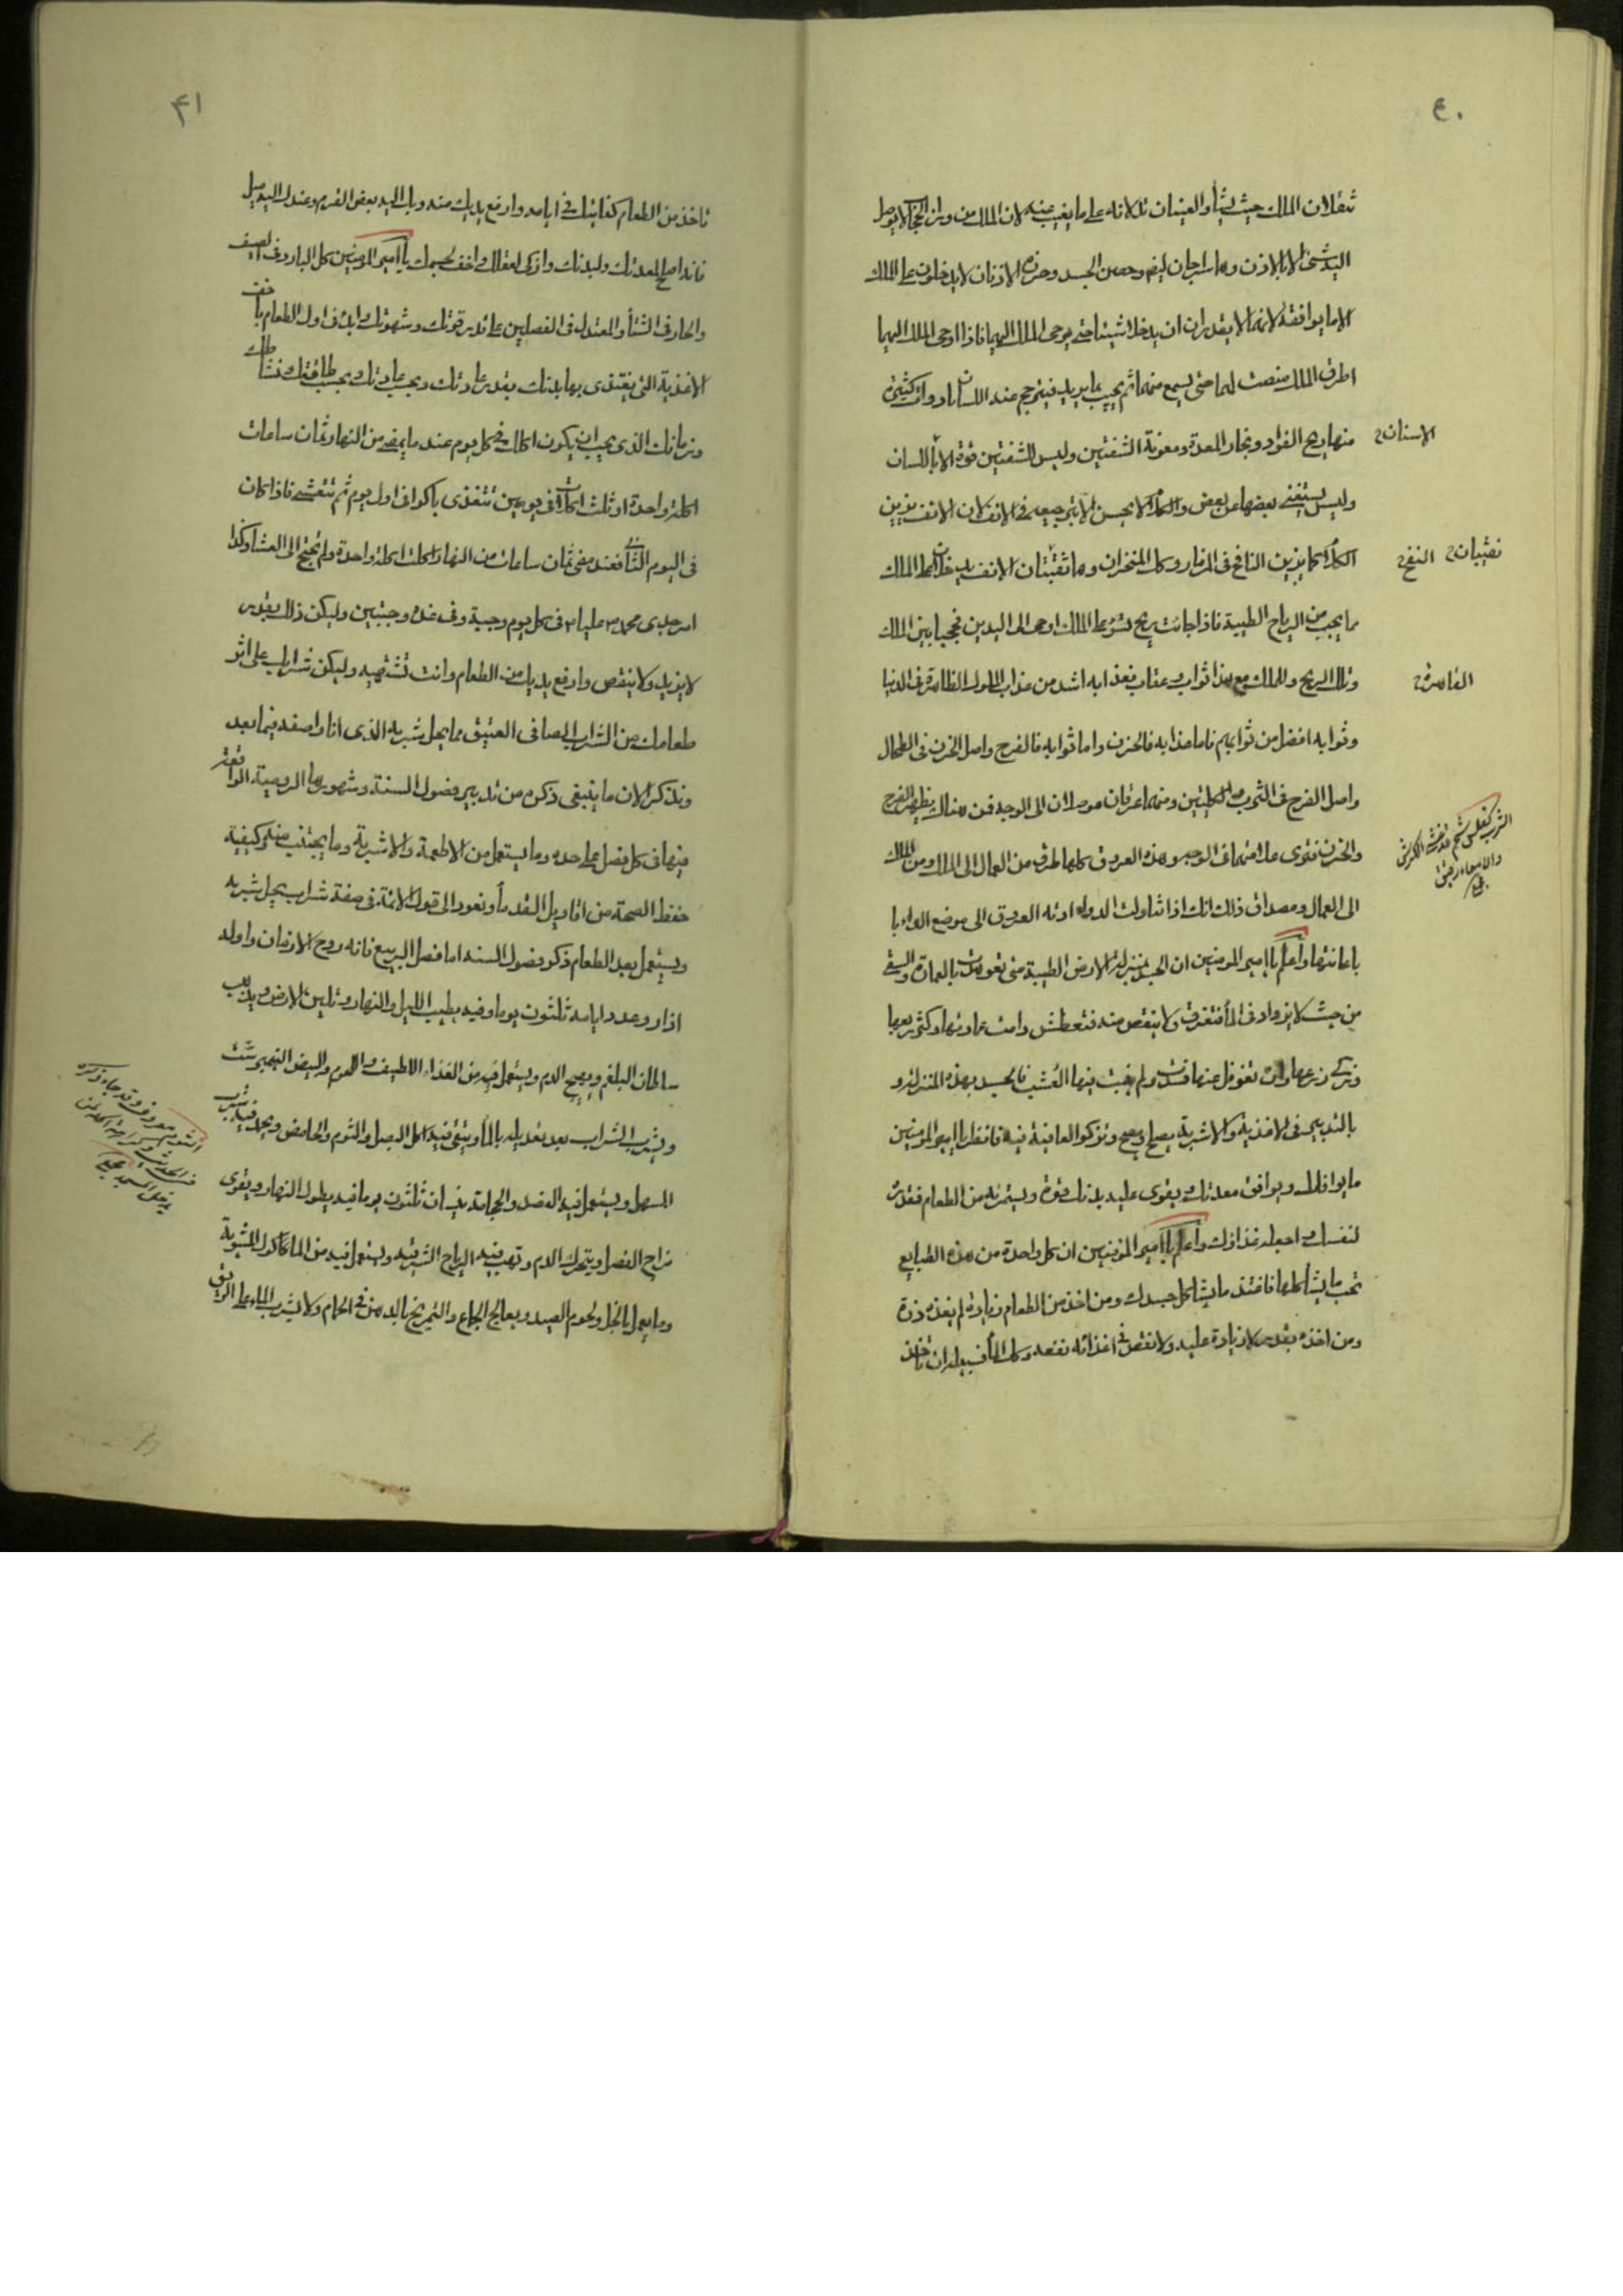 ٤٠
ينقلان الملك حيث يشأ والعينان تدلانه على ما يغيب عنه لان الملك من وراء الحجاب لا يوصل
اليه شئ الا بالاذن وهما سراجان ايضا وحصن الجسد وحرزه الاذنان لا يدخلون على الملك
الا ما يوافقه لانهما لا يقدران ان يدخلا شيئا حتى يوحى الملك اليهما فاذا اوحى الملك اليهما
اطرق الملك منصت لهما حتى يسمع منهما ثم يجيب بما يريد فيترجم عنه اللسان بادوات كثيرة
منها ريح الفؤاد وبخار المعدة ومعونة الشفتين وليس للشفتين قوة الا باللسان
الاسنان
وليس يستغنى بعضها عن بعض والكلام لا يحسن الا بترجيعه فى الانف لان الانف يزين
الكلام كما يزين النافخ فى المزمار وكك المنخران وهما ثقبتان الانف يدخلان على الملك
النفخ
نقيتان
مما يجب من الرياح الطيبة فاذا جائت ريح تسوء على الملك اوحى الى اليدين فحجبا بين الملك
وتلك الريح وللملك مع هذا ثواب وعقاب فعذابه اشد من عذاب الملوك الظاهرة فى الدنيا
القاهرة
وثوابه افضل من ثوابهم فاما عذابه فالحزن واما ثوابه فالفرح واصل الحزن فى الطحال
واصل الفرح فى الثرب والكليتين ومنهما عرقان موصلان الى الوجه فمن هنالك يظهر الفرح
الثرب كفلس شحم قد غشى الكرش
والامعاء رقيق
والحزن فترى علامتهما فى الوجه وهذه العروق كلها طرق من العمال الى الملك ومن الملك
الى العمال ومصداق ذلك انك اذا تناولت الدواء ادته العروق الى موضع الداء با
باعانتها واعلم يا امير المؤمنين ان الجسد بمنزلة الارض الطيبة متى تعوهدت بالعمارة والسقى
من حيث لا يزداد فى المأ فتغرق ولا ينقص منه فتعطش دامت عمارتها وكثر ريعها
وزكى زرعها وان تغوفل عنها فسدت ولم ينبت فيها العشب فالجسد بهذه المنزلة و
بالتدبير فى الاغذية والاشربة يصلح ويصح وتزكو العافية فيه فانظر يا امير المؤمنين
ما يوافقك ويوافق معدتك ويقوى عليه بدنك قوة ويستمرئه من الطعام فقدره
لنفسك واجعله غذاؤك واعلم يا امير المؤمنين ان كل واحدة من هذه الطبايع
تحب ما يشاكلها فاغتذ ما يشاكل جسدك ومن اخذ من الطعام زيادة لم يغذه
ومن اخذه بقدر لا زيادة عليه ولا نقص فى اغذائه نفعه وكك المأ فسبيله ان تأخذ
٤١
تاخذ من الطعام كفايتك فى ايامه وارفع يديك منه وبك اليه بعض القرم وعندك اليه ميل
فانه اصلح لمعدتك ولبدنك وازكى لعقلك واخف لجسمك يا امير المؤمنين كل البارد فى الصيف
والحار فى الشتأ والمعتدل فى الفصلين على قدر قوتك وشهوتك وابدء فى اول الطعام باخف
الاغذية التى يغتذى بها بدنك بقدر عادتك وبحسب طاقتك ونشاطك
وزمانك الذى يجب ان يكون اكلك فى كل يوم عند ما يمضى من النهار ثمان ساعات
اكلة واحدة او ثلث اكلات فى يومين تتغذى باكرا فى اول يوم ثم تتعشى فاذا كان
فى اليوم الثانى فعند مضى ثمان ساعات من النهار اكلت اكلة واحدة ولم تحتج الى العشأ وكذا
امر جدى محمد ص عليا ع فى كل يوم وجبة وفى غده وجبتين وليكن ذلك بقدر
لا يزيد ولا ينقص وارفع يديك من الطعام وانت تشتهيه وليكن شرابك على اثر
طعامك من الشراب الصافى العتيق مما يحل شربه الذى انا واصفه فيما بعد
ونذكر الان ما ينبغى ذكره من تدبير فصول السنة وشهورها الرومية الواقعة
فيها فى كل فصل على حده وما يستعمل من الاطعمة والاشربة وما يجتنب منه وكيفية
حفظ الصحة من اقاويل القدمأ ونعود الى قول الائمة فى صفة شراب يحل شربه
ويستعمل بعد الطعام ذكر فصول السنة اما فصل الربيع فانه روح الازمان واوله
اذار وعدد ايامه ثلثون يوما وفيه يطيب الليل والنهار وتلين الارض ويذهب
سلطان البلغم ويهيج الدم ويستعمل فيه من الغذاء اللطيف واللحوم والبيض النيمبرشت
ويشرب الشراب بعد تعديله بالمأ ويتقى فيه اكل البصل والثوم والحامض ويحمد فيه شرب
المسهل ويستعمل فيه الفصد والحجامة نيسان ثلثون يوما فيه يطول النهار ويقوى
مزاج الفصل ويتحرك الدم وتهب فيه الرياح الشرقية ويستعمل فيه من المآكل المشوية
وما يعمل بالخل ولحوم الصيد ويعالج الجماع والتمريخ بالدهن فى الحمام ولا يشرب الماء على الريق